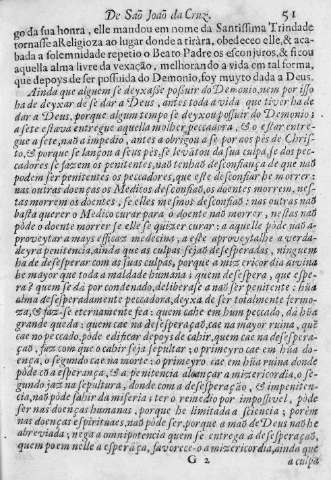 De Saõ Joaõ da Cruz. 51
go da sua honra, elle mandou em nome da Santissima Trindade
tornasse a Religioza ao lugar donde a tiràra, obedeceo elle, & aca-
bada a solemnidade repetio o Beato Padre os esconjuros, & ficou
aquella alma livre da vexação, melhorando a vida em tal forma,
que depoys de ser possuida do Demonio, foy muyto dada a Deus.
Ainda que alguem se deyxasse possuir do Demonio, nem por isso
ha de deyxar de se dar a Deus, antes toda a vida que tiver ha de
dar a Deus, porque algum tempo se deyxou possuir do Demonio:
a sete estava entregue aquella molher peccadora, & o estar entre-
gue a sete, naõ a impedio, antes a obrigou a se por aos pès de Chris-
to, & porque se lançou a seus pes, se levãtou da sua culpa, se dos pec-
cadores se fazem os penitentes, naõ tenhaõ desconfiança de que naõ
podem ser penitentes os peccadores, que este desconfiar he morrer:
nas outras doenças os Medicos desconfiaõ, os doentes morrem, nes-
tas morrem os doentes, se elles mesmos desconfiaõ: nas outras naõ
basta querer o Medico curar para o doente naõ morrer, nestas naõ
pòde o doente morrer se elle se quizer curar: a aquelle pòde naõ a-
proveytar a mays efficaz medecina, a este aproveytalhe a verda-
deyra penitencia, ainda que as culpas sejaõ desesperadas, ninguem
ha de desesperar com as suas culpas, porque a mizericordia divina
he mayor que toda a maldade humana; quem despera, que espe-
ra? quem se dà por condenado, deliberase a naõ ser penitente: hũa
alma desesperadamente peccadora, deyxa de ser totalmente fermo-
za, & faz-se eternamente fea: quem cahe em hum peccado, dà hũa
grande queda: quem cae na desesperaçaõ, cae na mayor ruina, què
cae no peccado, pòde edificar depoys de cahir, quem cae na desespera-
çaõ, faz com que o cahir seja sepultar: o primeyro cae em hũa do-
ença, o segundo cae na morte: o primeyro cae em hũa ruina donde
pòde cõ a esperança, & a penitencia alcançar a mizericordia, o se-
gundo jaz na sepultura, donde com a desesperaçaõ, & impeniten-
cia, naõ pòde sahir da miseria: ter o remedio por impossivel, pòde
ser nas doenças humanas, porque he limitada a sciencia; porèm
nas doenças espirituaes, naõ pòde ser, porque a maõ de Deus naõ he
abreviada; nega a omnipotencia quem se entrega à desesperaçaõ,
quem poem nelle a esperãça, favorece-o a mizericordia, ainda que
G 2 a culpa